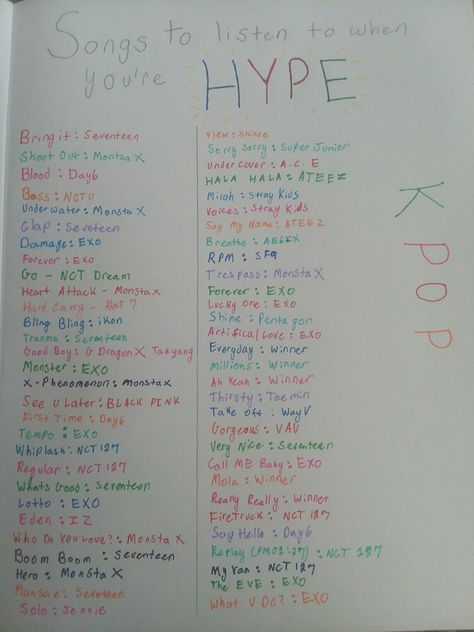 Songs to listen to when
you're HYPE
KPOP
Bring it: Seventeen
Shoot Out: Montsa X
Blood: Day6
Boss: NCT U
Underwater: Monsta X
Clap: Seventeen
Damage: EXO
Forever: EXO
Go - NCT Dream
Heart Attack - Monsta X
Hard Carry - Got 7
Bling Bling: iKon
Trauma: Seventeen
Good Boy: G Dragon X Taeyang
Monster: EXO
X-Phenomonon: monsta X
See U Later: BLACK PINK
First Time: Day6
Tempo: EXO
Whiplash: NCT 127
Regular: NCT 127
Whats Good: Seventeen
Lotto: EXO
Eden: IZ
Who Do You Love?: Monsta X
Boom Boom: Seventeen
Hero: Monsta X
Mansae: Seventeen
Solo: Jennie
View: Shinee
Sorry Sorry: Super Junior
Under Cover: A.C.E
HALA HALA: ATEEZ
Miroh: Stray Kids
Voices: Stray Kids
Say My Name: ATEEZ
Breathe: AB6IX
RPM: SF9
Trespass: Monsta X
Forever: EXO
Lucky One: EXO
Shine: Pentagon
Artifical Love: EXO
Everyday: Winner
Millions: Winner
Ah Yeah: Winner
Thirsty: Taemin
Take off: WayV
Gorgeous: VAV
Very Nice: Seventeen
Call ME Baby: EXO
Mola: Winner
Really Really: Winner
FireTruck: NCT 127
Say Hello: Day6
Replay (PM01:27): NCT 127
My Van: NCT 127
The EVE: EXO
What U Do?: EXO